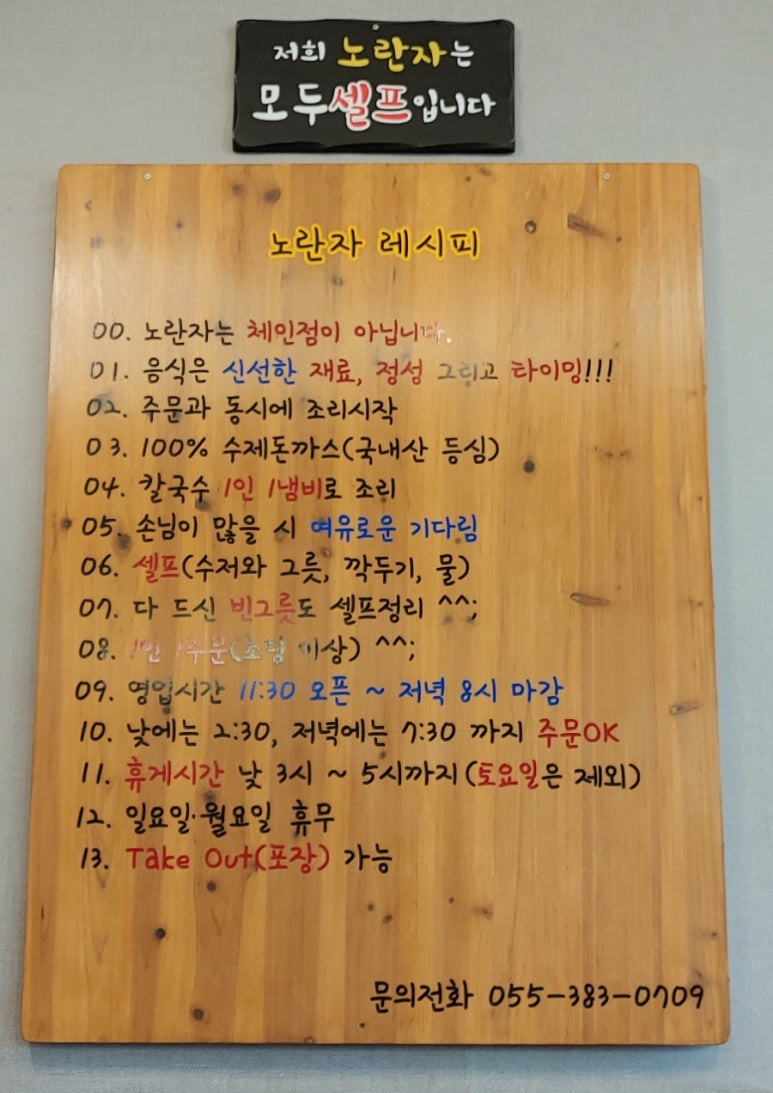 저희 노란자는
모두셀프입니다
노란자 레시피
00. 노란자는 체인점이 아닙니다.
01. 음식은 신선한 재료, 정성 그리고 타이밍!!!
02. 주문과 동시에 조리시작
03. 100% 수제돈까스(국내산 등심)
04. 칼국수 1인 1냄비로 조리
05. 손님이 많을 시 여유로운 기다림
06. 셀프(수저와 그릇, 깍두기, 물)
07. 다 드신 빈그릇도 셀프정리 ^^;
08. 1인 1주문(초딩 이상) ^^;
09. 영업시간 11:30 오픈 ~ 저녁 8시 마감
10. 낮에는 2:30, 저녁에는 7:30 까지 주문OK
11. 휴게시간 낮 3시 ~ 5시까지(토요일은 제외)
12. 일요일·월요일 휴무
13. Take Out(포장) 가능
문의전화 055-383-0709